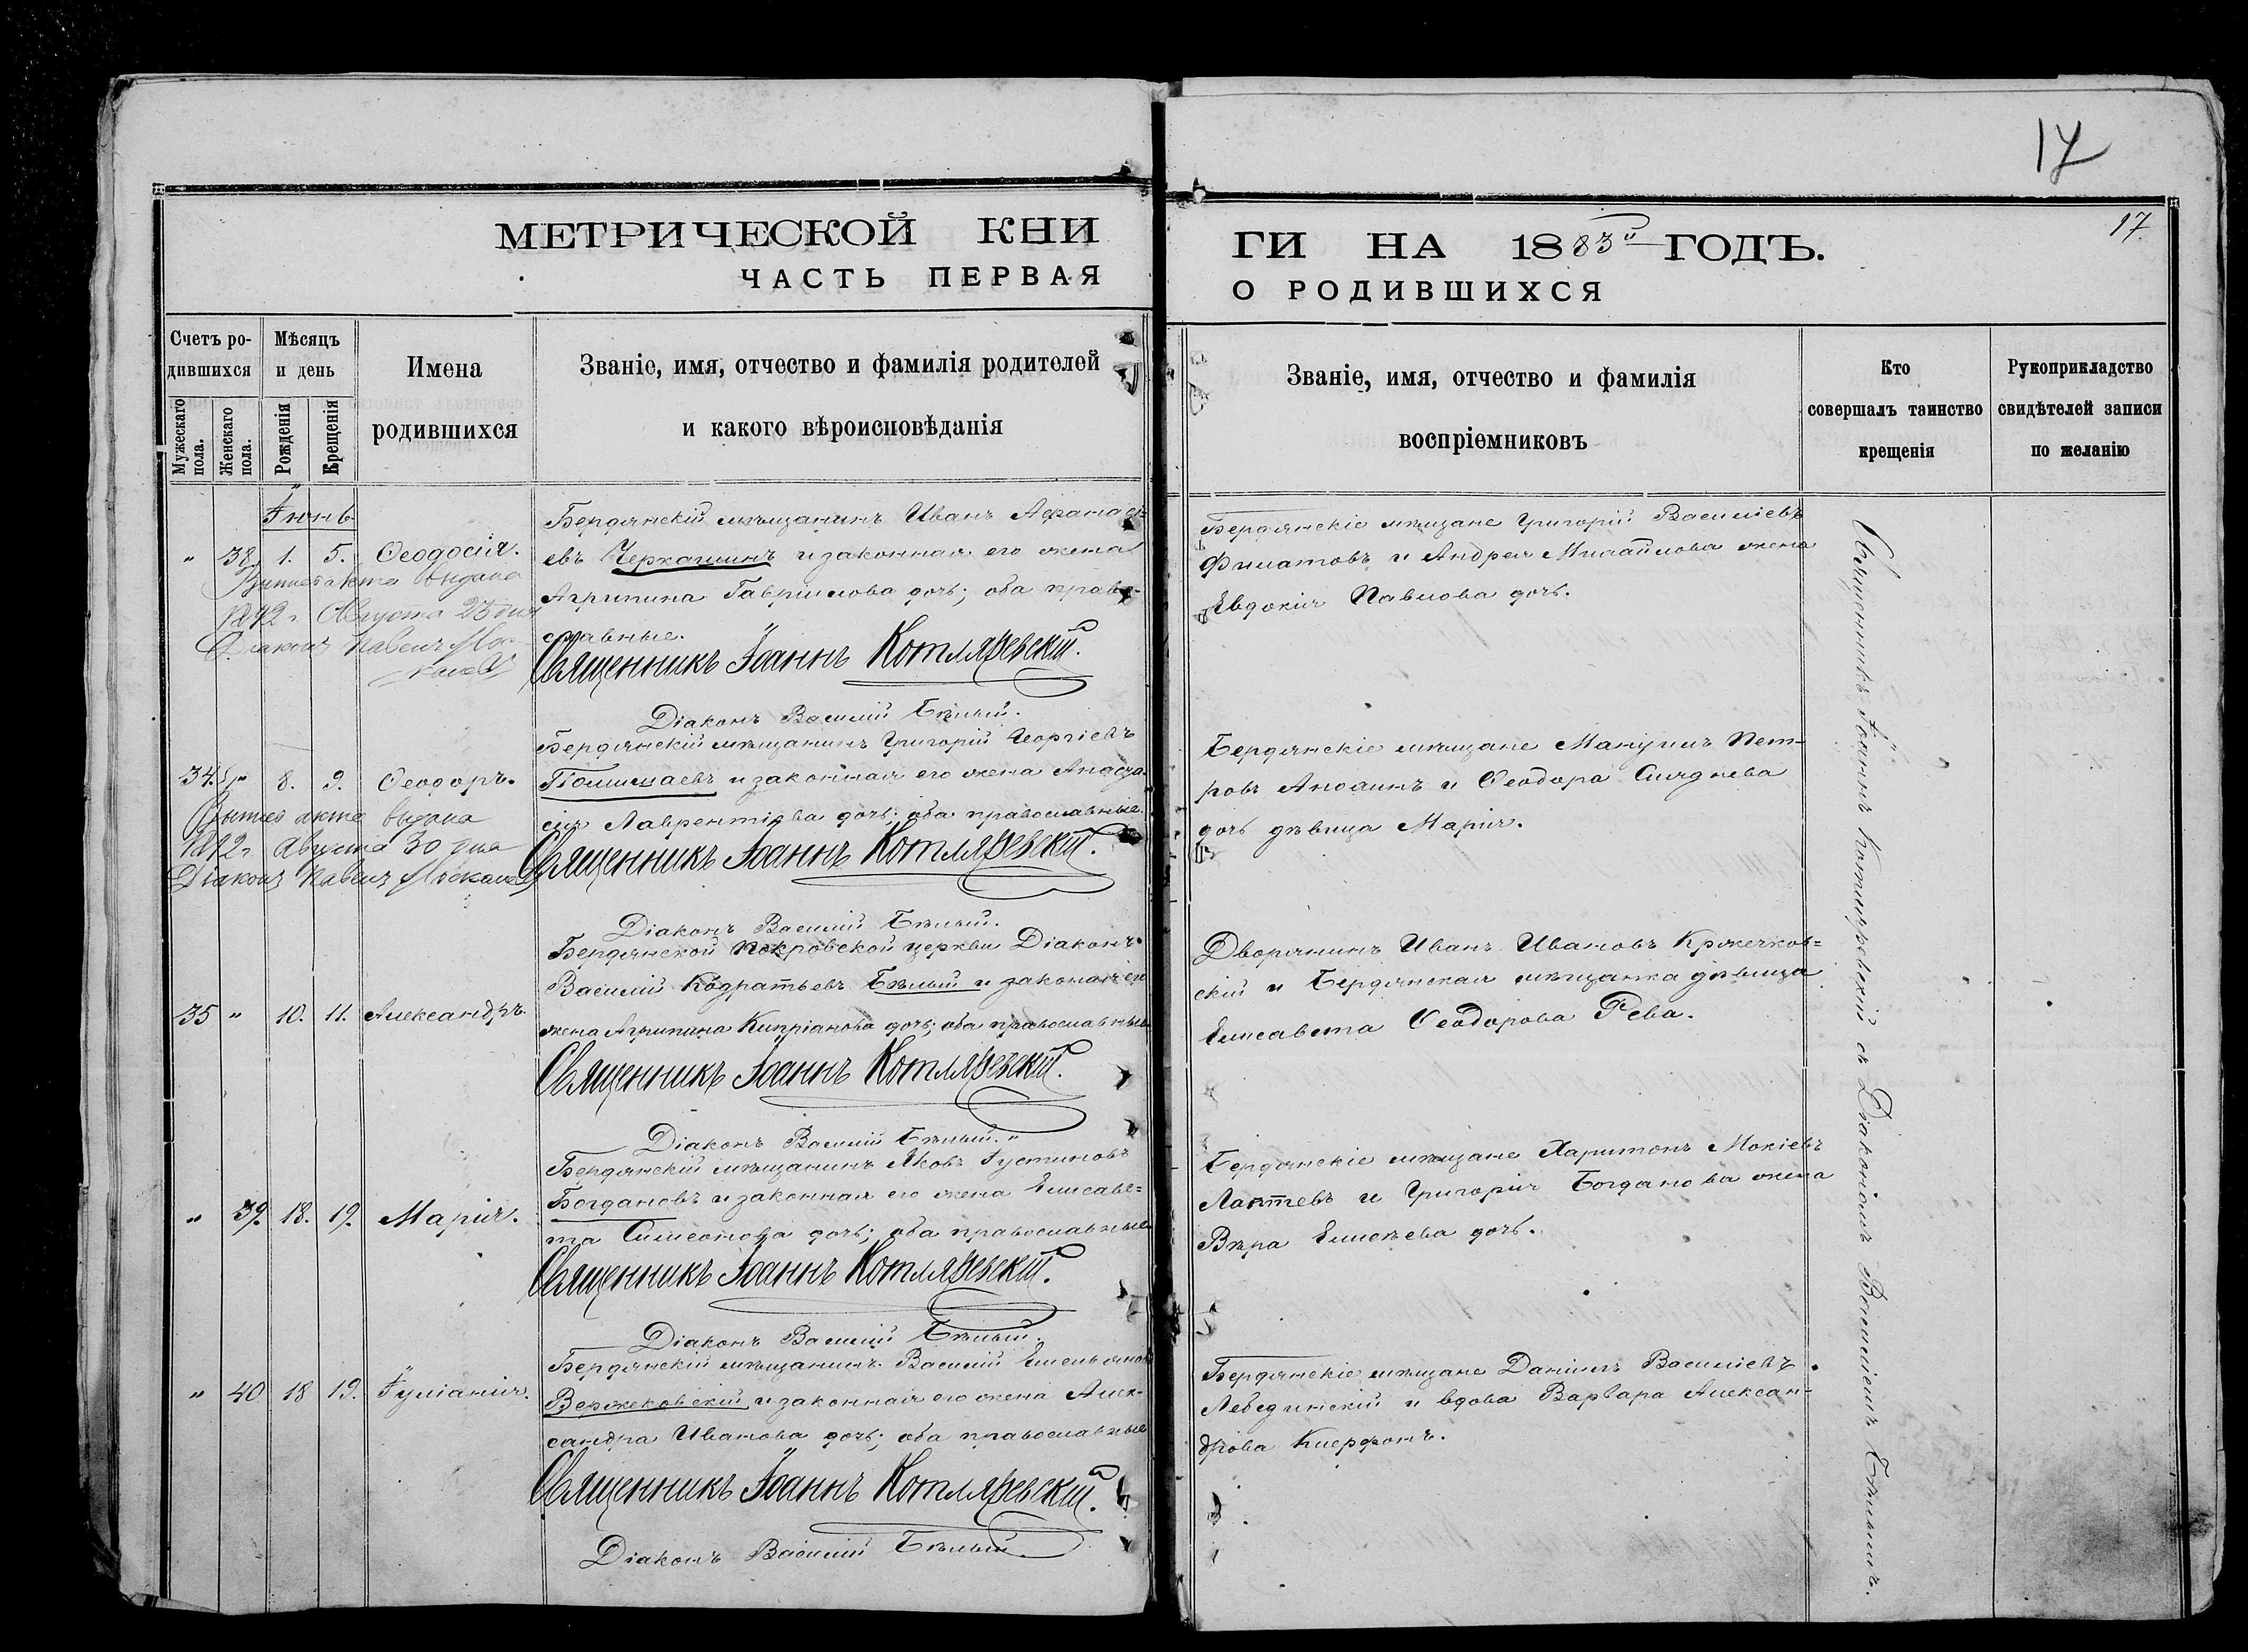 МЕТРИЧЕСКОЙ КНИ
ЧАСТЬ ПЕРВАЯ
Счетъ ро-
дившихся
Мѣсяцъ
и день
Имена
родившихся
Званіе, имя, отчество и фамилія родителей
и какого вѣроисповѣданія
Мужескаго
пола.
Женскаго
пола.
Рожденія
Крещенія
Іюнь
Бердянскій мѣщанинъ Иванъ Афанась-
" 38. 1. 5. Ѳеодосія.
евъ Черкашинъ и законная его жена
Агрипина Гавріилова дочь; оба право-
славные.
Выпись акта выдана
1892 г. Августа 23 дня
Діаконъ Павелъ
Священникъ Іоаннъ Котляревскій.
Діаконъ Василій Бѣлый.
Бердянскій мѣщанинъ Григорій Георгіевъ
34. " 8. 9. Ѳеодоръ.
и законная его жена Анаста-
сія Лаврентіева дочь; оба православные.
Выпись акта выдана
1892 г. Августа 30 дня
Діаконъ Павелъ
Священникъ Іоаннъ Котляревскій.
Діаконъ Василій Бѣлый.
Бердянской Покровской церкви Діаконъ
Василій Кодратьевъ Бѣлый и законная его
35 " 10. 11. Александръ.
жена Агрипина Кипріанова дочь; оба православные
Священникъ Іоаннъ Котляревскій.
Діаконъ Василій Бѣлый."
Бердянскій мѣщанинъ Яковъ Іустиновъ
Богдановъ и законная его жена Елисаве=
" 39. 18. 19. Марія.
та Симеонова дочь; оба православные
Священникъ Іоаннъ Котляревскій.
Діаконъ Василій Бѣлый.
Бердянскій мѣщанинъ Василій Емельянов
" 40 18 19. Іуліанія.
Вержековскій и законная его жена Алек-
сандра Иванова дочь; оба православные
Священникъ Іоаннъ Котляревскій.
Діаконъ Василій Бѣлый
17
17.
ГИ НА 1883й ГОДЪ.
О РОДИВШИХСЯ
Званіе, имя, отчество и фамилія
воспріемниковъ
Кто
совершалъ таинство
крещенія
Рукоприкладство
свидѣтелей записи
по желанію
Бердянскіе мѣщане Григорій Василіевъ
Филатовъ и Андрея Михайлова жена
Евдокія Павлова дочь.
Бердянскіе мѣщане Мануилъ Пет-
ровъ и Ѳеодора
дочь дѣвица Марія.
Дворянинъ Иванъ Ивановъ Кржечков=
скій и Бердянская мѣщанка дѣвица
Елисавета Ѳеодорова Рева.
Бердянскіе мѣщане Харитонъ Мокіевъ
Лаптевъ и Григорія Богданова жена
Вѣра Елисѣева дочь.
Бердянскіе мѣщане Даніилъ Василіевъ
Лебединскій и вдова Варвара Алексан-
дрова
Священникъ Іоаннъ Котляревскій съ Діакономъ Василіемъ Бѣлымъ.